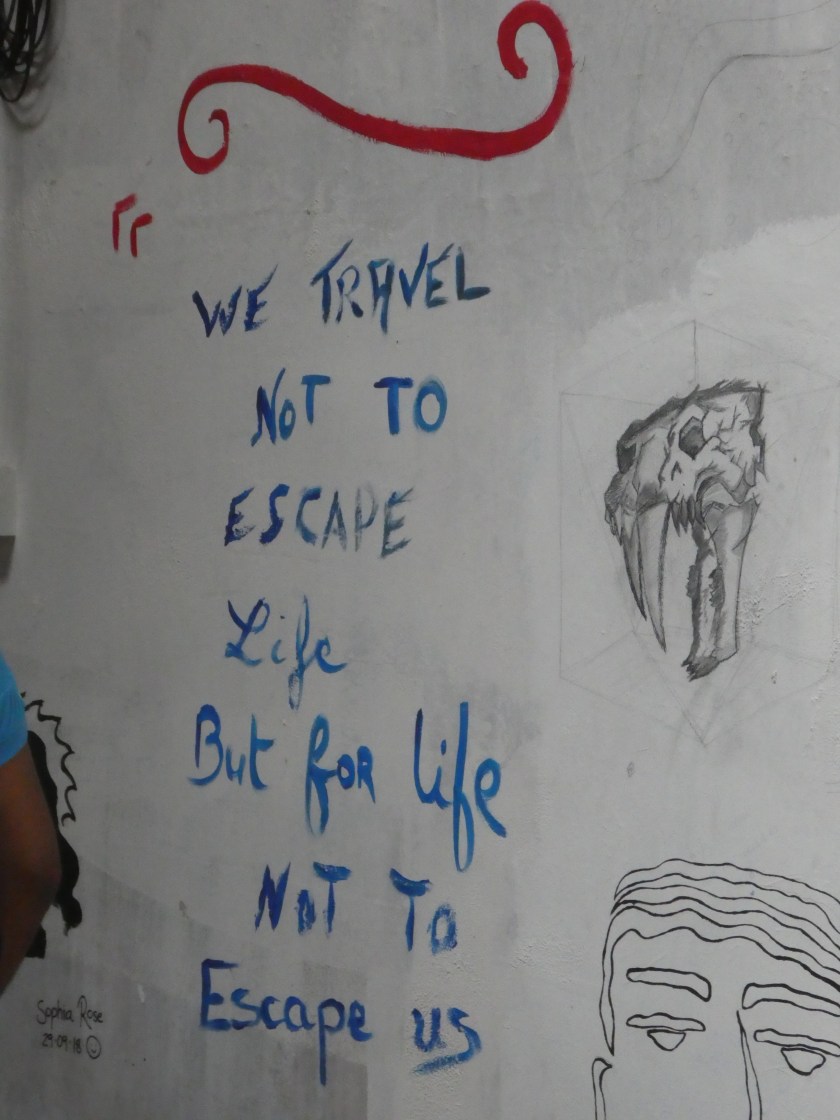 “
WE TRAVEL
NOT TO
ESCAPE
Life
But foR life
NOT To
Escape us
Sophia Rose
29·09·18